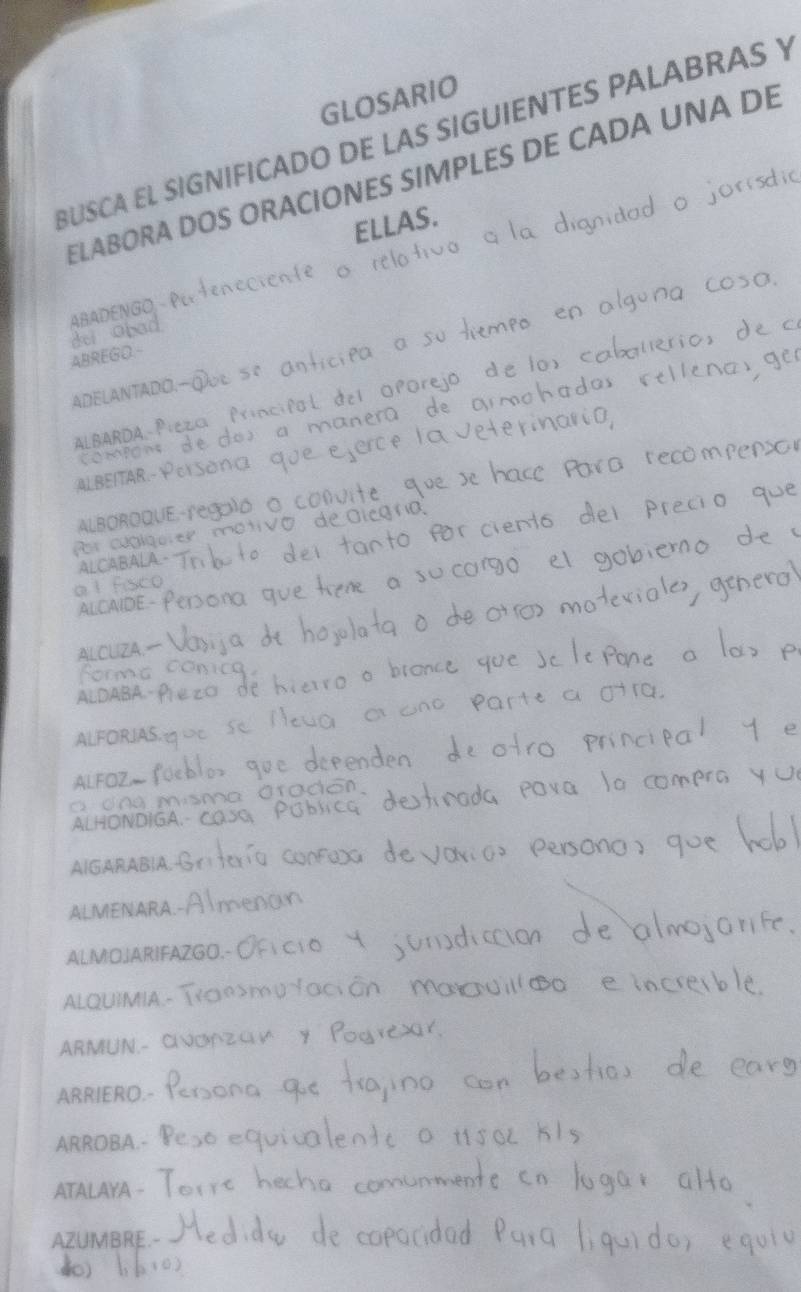 GLOSARIO
BUSCA EL SIGNIFICADO DE LAS SIGUIENTES PALABRAS Y
ELABORA DOS ORACIONES SIMPLES DE CADA UNA DE
ELLAS.
ABADENGO.- Perteneciente o relativo a la dignidad o jorisdic
del abad
ABREGO.-
ADELANTADO.- Que se anticipa a su tiempo en alguna cosa.
ALBARDA.- Pieza Principal del aparejo de los caballerios de c
compone de dos a manera de almohadas rellenas, gen
ALBEITAR.- Persona que ejerce la veterinaria,
ALBOROQUE.- regalo o convite que se hace para recompensar
Por cualquier motivo de alegria.
ALCABALA.- Tributo del tanto por ciento del precio que
al fisco
ALCAIDE.- Persona que tiene a su cargo el gobierno de
ALCUZA.- Vasija de hojolata o de otros materiales, general
forma conica.
ALDABA.- Pieza de hierro o bronce que se le pone a las p
ALFORJAS. que se lleva a una parte a otra.
ALFOZ.- Pueblos que dependen de otro principal y e
a una misma
ALHONDIGA.- casa Pública destinada para la compra y ve
AIGARABIA. Griteria confusa de varias personas que habl
ALMENARA.- Almenan
ALMOJARIFAZGO.- Oficio y jurisdiccion de almojarife.
ALQUIMIA.- Transmutación maravilloso e increible.
ARMUN.- avanzar y Pogresar.
ARRIERO.- Persona que trajino con bestias de carg
ARROBA.- Peso equivalente a 11502 Kls
ATALAYA- Torre hecha comunmente en lugar alto.
AZUMBRE.- Medida de caparidad Para liquidos equiv
dos libros